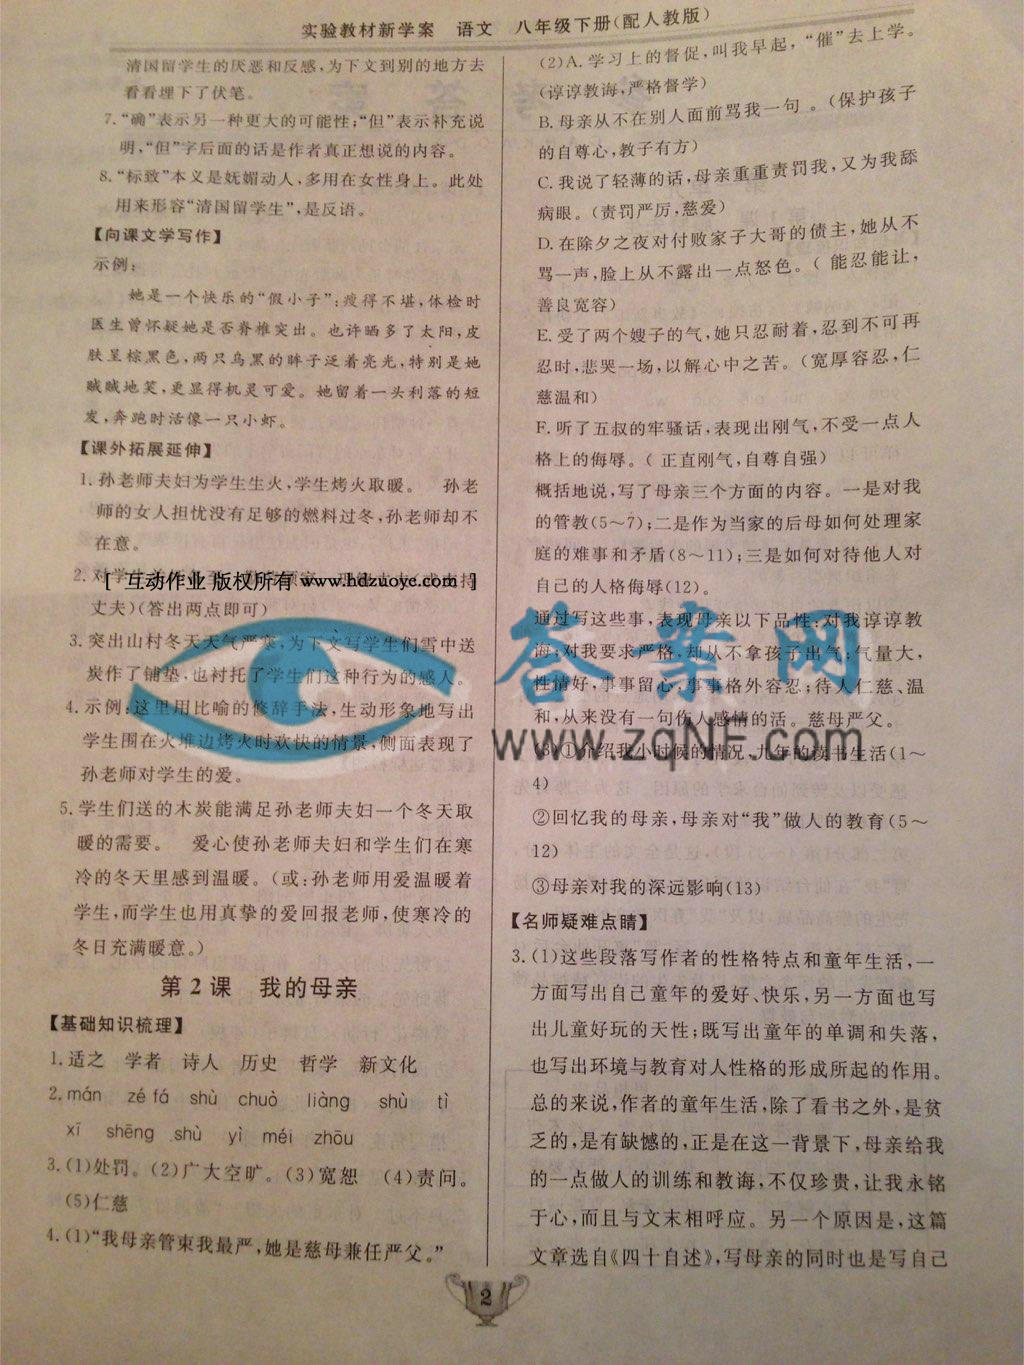 实验教材新学案 语文 八年级下册(配人教版)
清国留学生的厌恶和反感,为下文到别的地方去
看看埋下了伏笔。
7.“确”表示另一种更大的可能性;“但”表示补充说
明,“但”字后面的话是作者真正想说的内容。
8.“标致”本义是妩媚动人,多用在女性身上。此处
用来形容“清国留学生”,是反语。
【向课文学写作】
示例:
她是一个快乐的“假小子”:瘦得不堪,体检时
医生曾怀疑她是否脊椎突出。也许晒多了太阳,皮
肤呈棕黑色,两只乌黑的眸子泛着亮光,特别是她
贼贼地笑,更显得机灵可爱。她留着一头利落的短
发,奔跑时活像一只小虾。
【课外拓展延伸】
1.孙老师夫妇为学生生火,学生烤火取暖。 孙老
师的女人担忧没有足够的燃料过冬,孙老师却不
在意。
2.对学生
[ 互动作业 版权所有 www.hdzuoye.com ]
丈夫)(答出两点即可)
3.突出山村冬天天气严寒,为下文写学生们雪中送
炭作了铺垫,也衬托了学生们这种行为的感人。
4.示例:这里用比喻的修辞手法,生动形象地写出
学生围在火堆边烤火时欢快的情景,侧面表现了
孙老师对学生的爱。
5.学生们送的木炭能满足孙老师夫妇一个冬天取
暖的需要。 爱心使孙老师夫妇和学生们在寒
冷的冬天里感到温暖。(或:孙老师用爱温暖着
学生,而学生也用真挚的爱回报老师,使寒冷的
冬日充满暖意。)
第2课 我的母亲
【基础知识梳理】
1.适之 学者 诗人 历史 哲学 新文化
2.mán zé fá shù chuò liàng shù tì
xī shēng shù yì méi zhōu
3.(1)处罚。(2)广大空旷。(3)宽恕 (4)责问。
(5)仁慈
4.(1)“我母亲管束我最严,她是慈母兼任严父。”
(2)A.学习上的督促,叫我早起,“催”去上学。
(谆谆教诲,严格督学)
B.母亲从不在别人面前骂我一句 。(保护孩子
的自尊心,教子有方)
C.我说了轻薄的话,母亲重重责罚我,又为我舔
病眼。(责罚严厉,慈爱)
D.在除夕之夜对付败家子大哥的债主,她从不
骂一声,脸上从不露出一点怒色。( 能忍能让,
善良宽容)
E.受了两个嫂子的气,她只忍耐着,忍到不可再
忍时,悲哭一场,以解心中之苦。(宽厚容忍,仁
慈温和)
F.听了五叔的牢骚话,表现出刚气,不受一点人
格上的侮辱。( 正直刚气,自尊自强)
概括地说,写了母亲三个方面的内容。一是对我
的管教(5~7);二是作为当家的后母如何处理家
庭的难事和矛盾(8~11);三是如何对待他人对
自己的人格侮辱(12)。
通过写这些事,表现母亲以下品性:对我谆谆教
诲;对我要求严格,却从不拿孩子出气;气量大,
性情好,事事留心,事事格外容忍;待人仁慈、温
和,从来没有一句伤人感情的活。慈母严父。
(3)①介绍我小时候的情况、九年的读书生活(1~
4)
②回忆我的母亲,母亲对“我”做人的教育(5~
12)
③母亲对我的深远影响(13)
【名师疑难点睛】
3.(1)这些段落写作者的性格特点和童年生活,一
方面写出自己童年的爱好、快乐,另一方面也写
出儿童好玩的天性;既写出童年的单调和失落,
也写出环境与教育对人性格的形成所起的作用。
总的来说,作者的童年生活,除了看书之外,是贫
乏的,是有缺憾的,正是在这一背景下,母亲给我
的一点做人的训练和教诲,不仅珍贵,让我永铭
于心,而且与文末相呼应。另一个原因是,这篇
文章选自《四十自述》,写母亲的同时也是写自己
答案网
www.zqNF.com
2